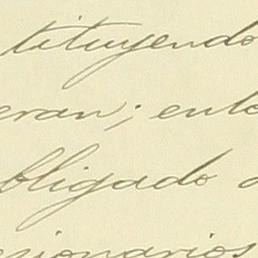 tituyendo
eran; ento
obligado a
sionarios